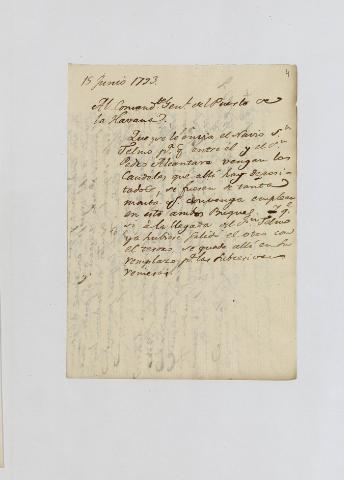 4
15 Junio 1793.
Al Comand.te Gen.l del Puerto de
la Havana.
Que se le envia el Navio S.n
Telmo p.a q. entre el y el S.n
Pedro Alcantara vengan los
Caudales que alli hay deposi-
tados, se fuesen de tanta
monta q. convenga emplear
en esto ambos Buques, y q.
si à la llegada del S.n Telmo
ya hubiere salido el otro con
el tesoro, se quede alli en su
remplazo p.a las succesivas
remesas.